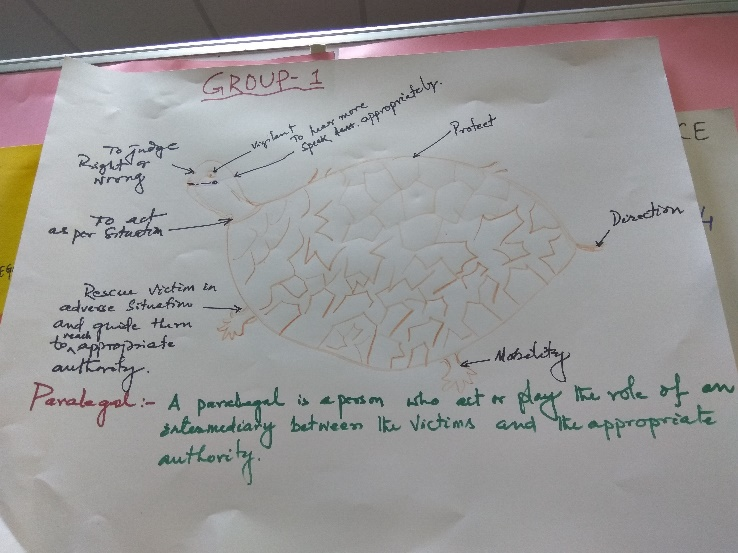 GROUP-1
To judge
Right or
Wrong
Vigilant
To hear more
speak less. appropriately.
Protect
CE
To act
as per Situation
Direction
4
Rescue victim in
adverse Situation
and guide them
to reach appropriate
authority.
Mobility
Paralegal:- A paralegal is a person who act or play the role of an
intermediary between the Victims and the appropriate
authority.